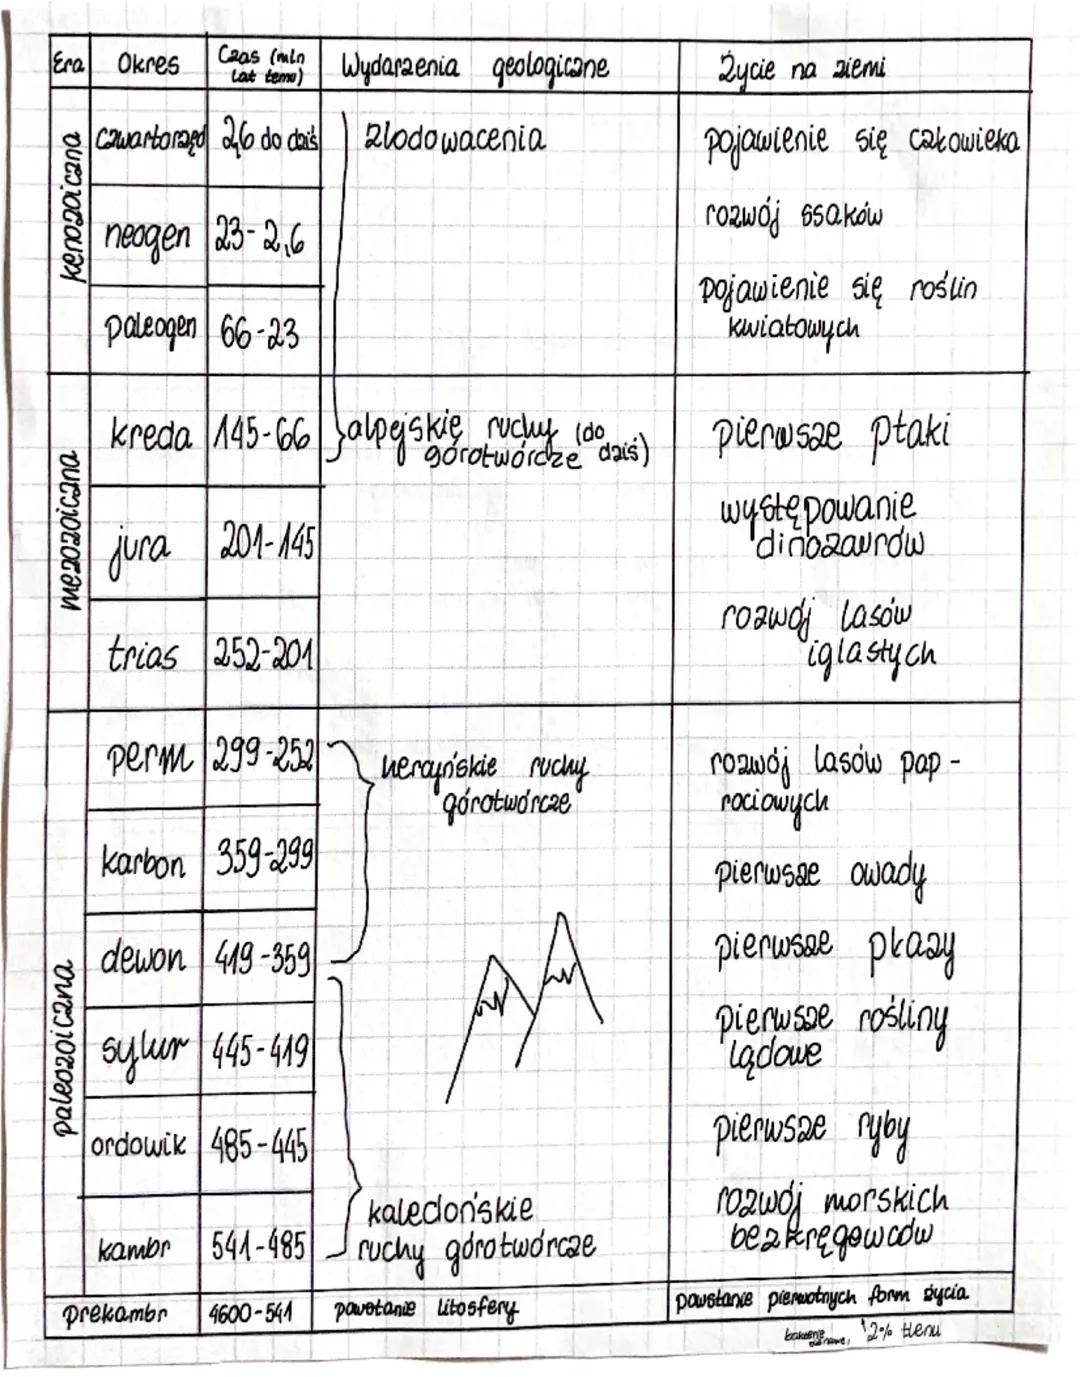 Era Okres Czas (mln lat temu) Wydarzenia geologiczne Życie na ziemi
kenozoiczna
czwartorzęd 2,6 do dziś zlodowacenia pojawienie się człowieka
neogen 23-2,6 rozwój ssaków
paleogen 66-23 pojawienie się roślin
kwiatowych
mezozoiczna
kreda 145-66 alpejskie ruchy (do
górotwórcze dziś) pierwsze ptaki
jura 201-145 występowanie
dinozaurów
trias 252-201 rozwój lasów
iglastych
paleozoiczna
perm 299-252 hercyńskie ruchy
górotwórcze rozwój lasów pap-
rociowych
karbon 359-299 pierwsze owady
dewon 419-359 pierwsze płazy
sylur 445-419 pierwsze rośliny
lądowe
ordowik 485-445 pierwsze ryby
kambr 541-485 kaledońskie
ruchy górotwórcze rozwój morskich
bezkręgowców
prekambr 4600-541 powstanie litosfery powstanie pierwotnych form życia
2% tlenu